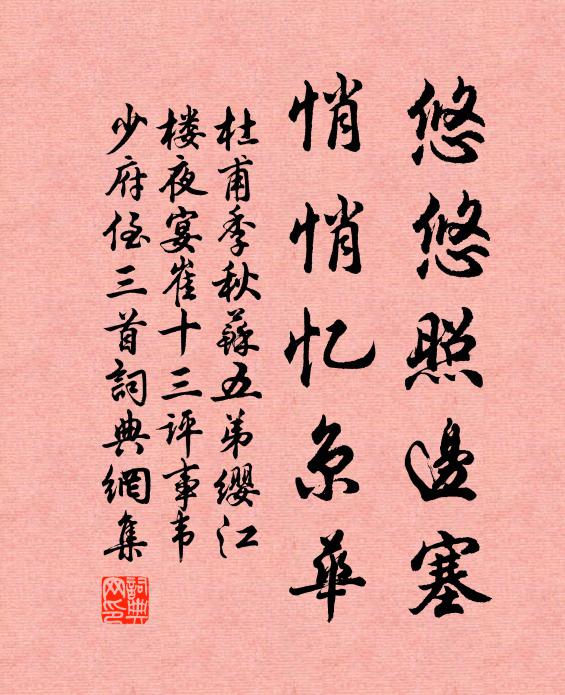 悠悠照邊塞
悄悄忆京華
杜甫季秋蘇五弟缨江
楼夜宴崔十三评事韦
少府侄三首詞典網集
詞典网印